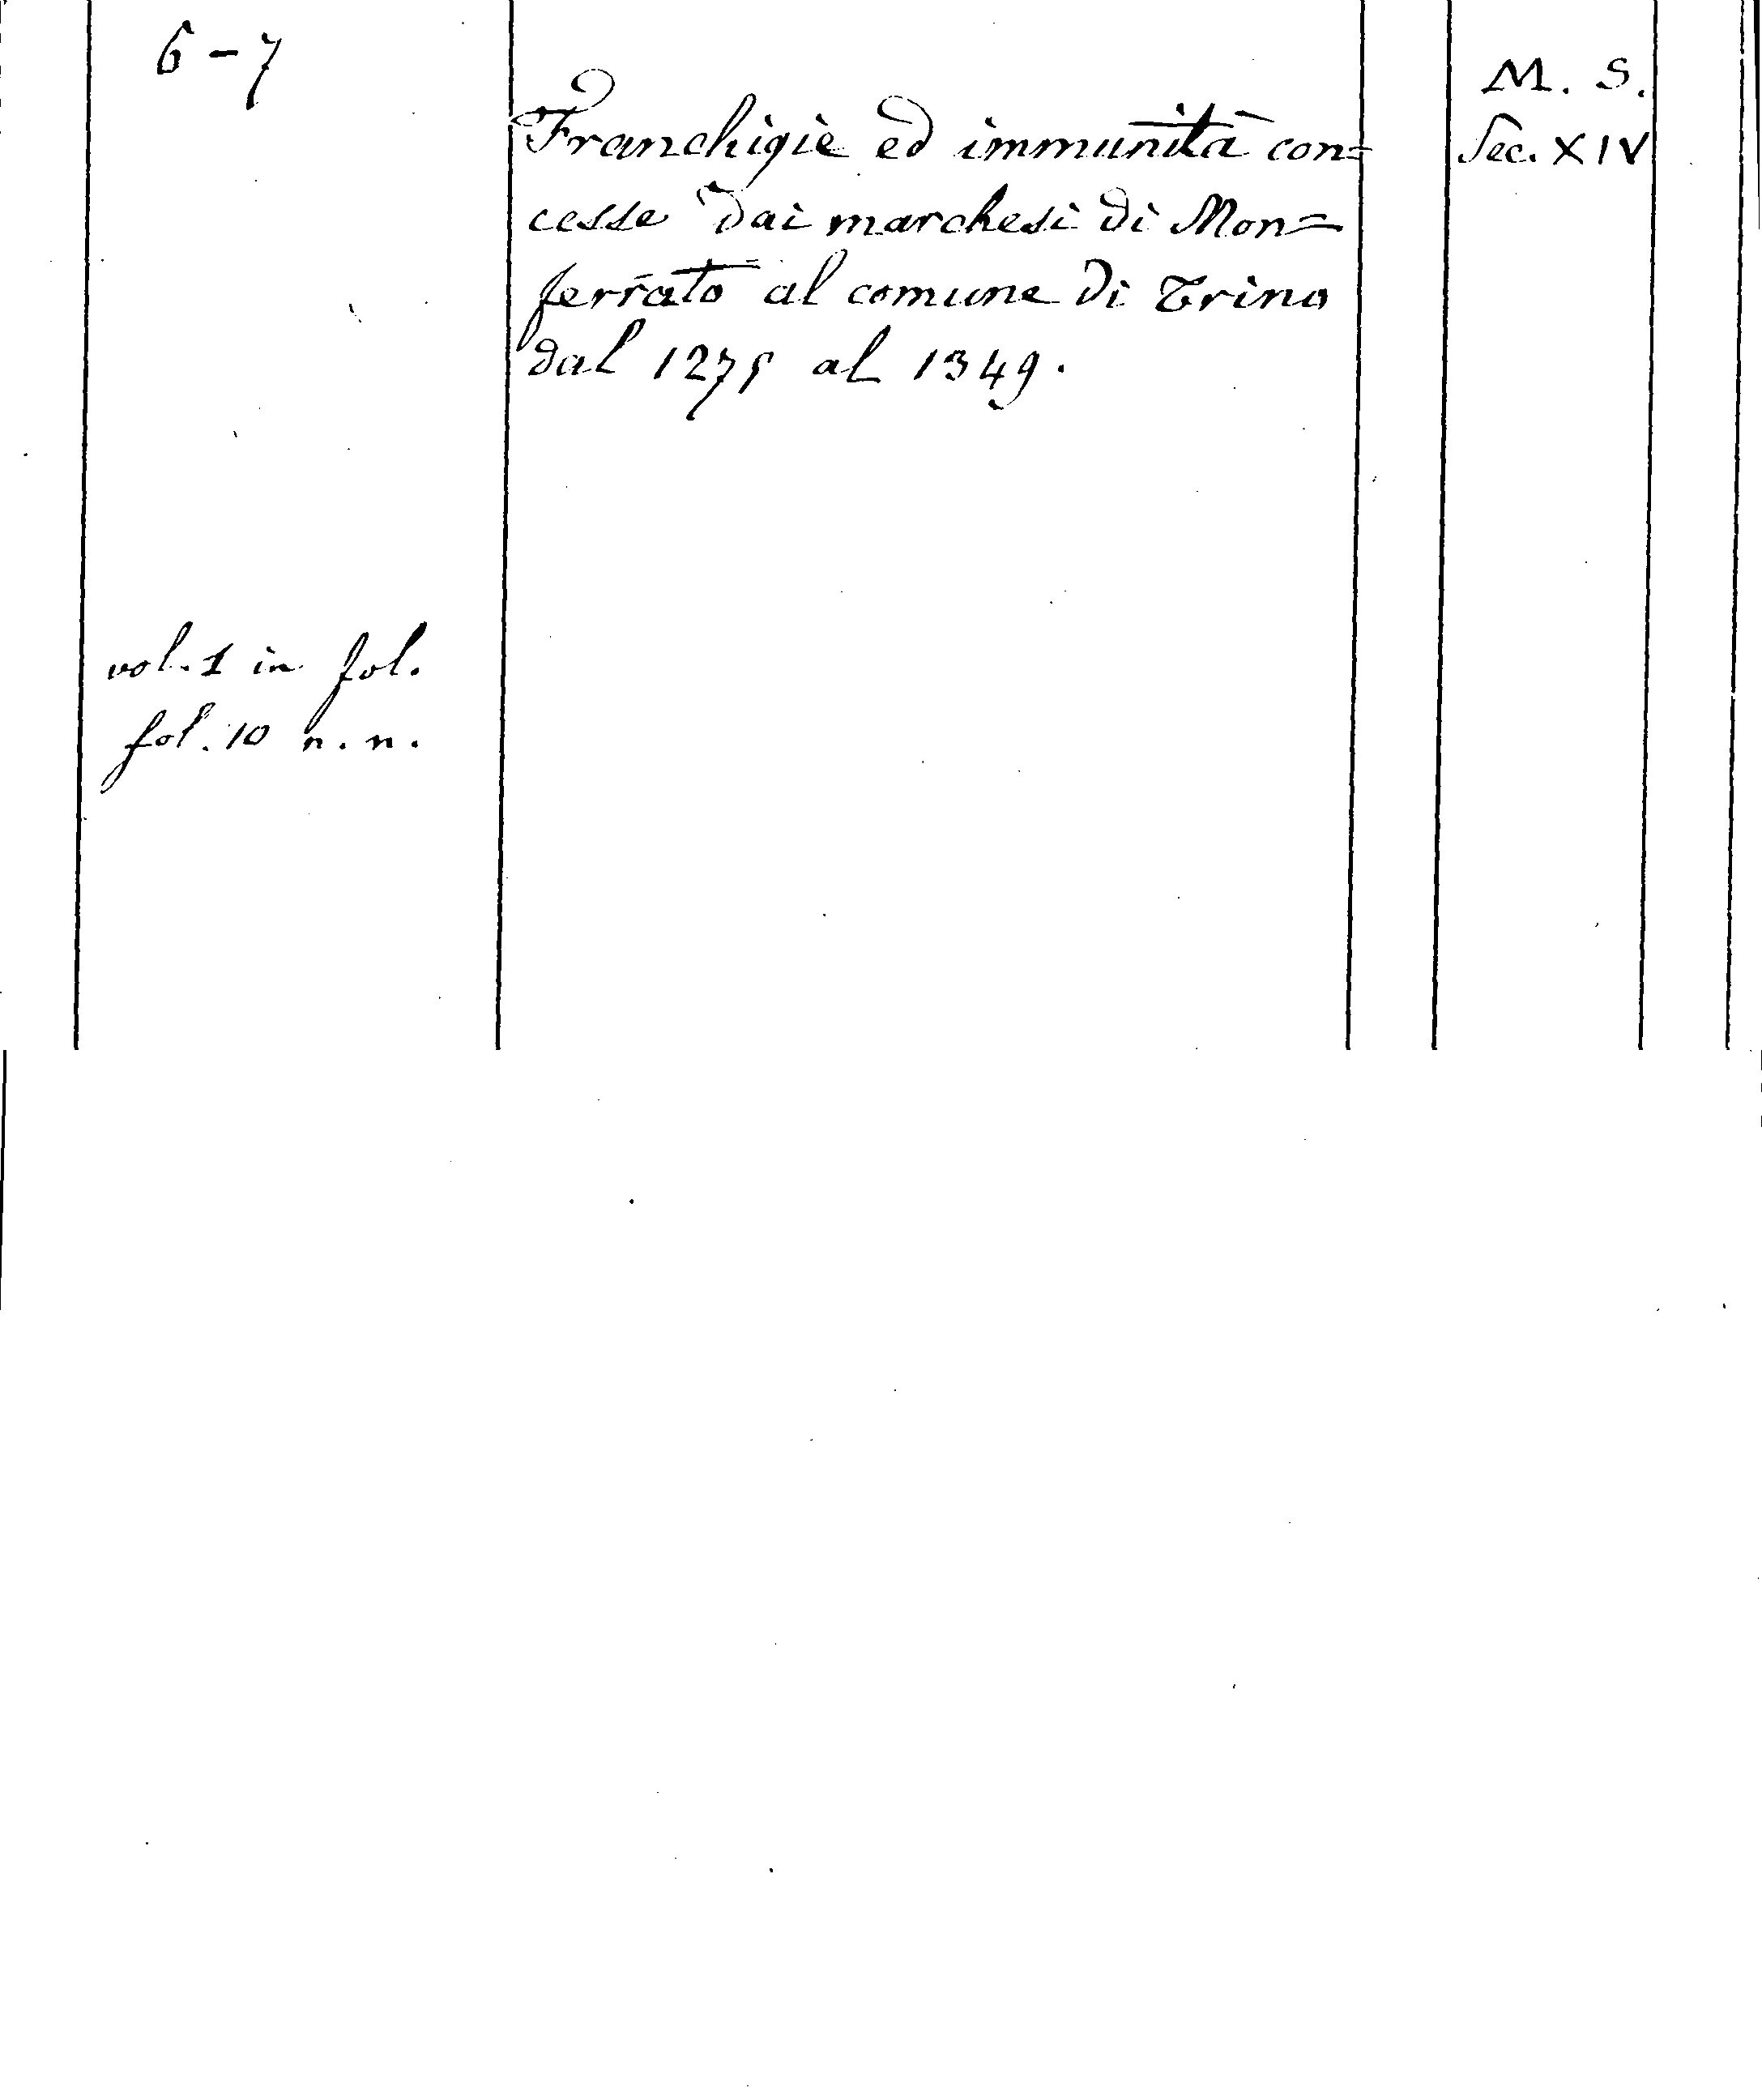 6-7
Franchigie ed immunità con=
cesse dai marchesi di Mon=
ferrato al comune di Trino
dal 1275 al 1349.
M. S.
Sec. XIV
vol. 1 in fol.
fol. 10 n. n.